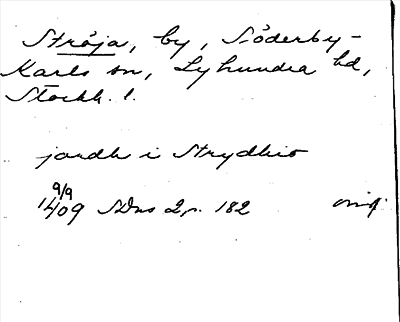 Ströja, by, Söderby-
Karls sn, Lyhundra hd,
Stockh. l.
jordh i Strydhio
9/9
1409 SDns 2 p. 182 orig.